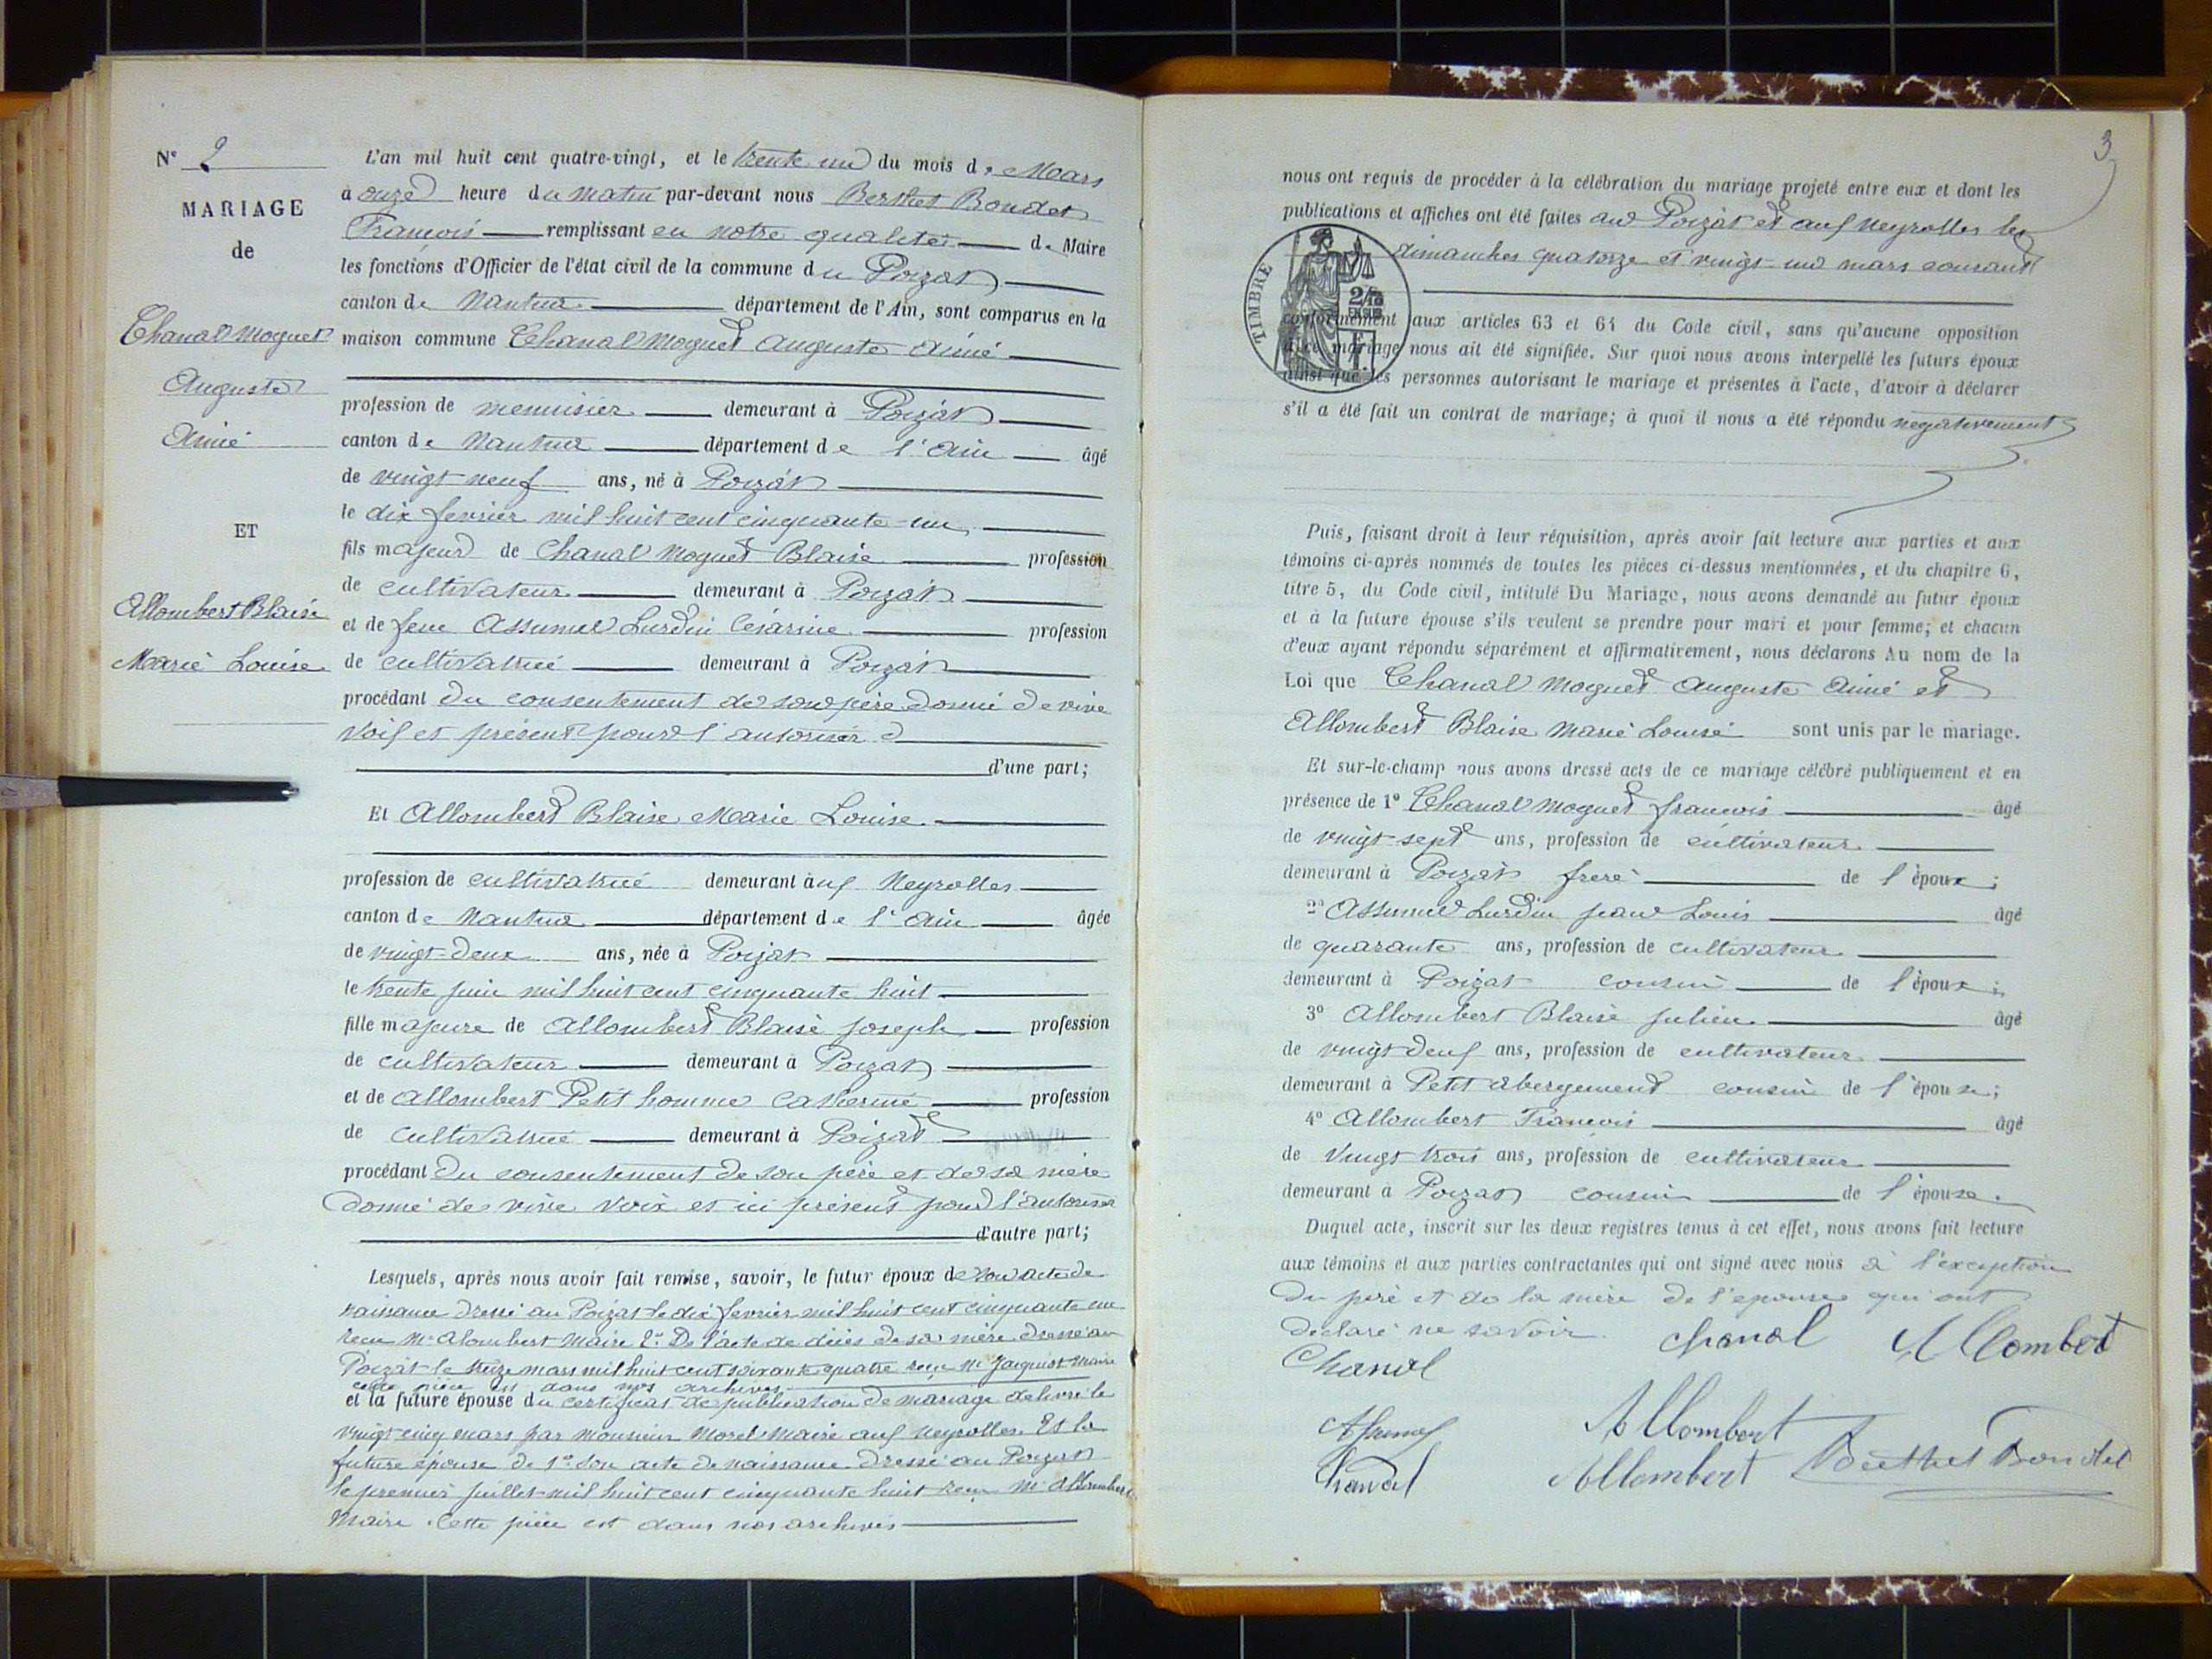 N° 2
MARIAGE
de
Chanal Moguet
Auguste
Aimé
ET
Allombert Blaise
Marie Louise
L'an mil huit cent quatre-vingt, et le trente un du mois de Mars
à onze heure du matin par-devant nous Berthet Bondet
Francois remplissant en notre qualité de Maire
les fonctions d'Officier de l'état civil de la commune du Poizat
canton de Nantua département de l'Ain, sont comparus en la
maison commune Chanal Moguet Auguste Aimé
profession de menuisier demeurant à Poizat
canton de Nantua département de l'Ain âgé
de vingt neuf ans, né à Poizat
le dix fevrier mil huit cent cinquante-un
fils majeur de Chanal Moguet Blaise profession
de cultivateur demeurant à Poizat
et de feue Assumel Lurdin Césarine profession
de cultivatrice demeurant à Poizat
procédant du consentement de son père donné de vive
voix et présent pour l'autoriser
d'une part;
Et Allombert Blaise Marie Louise
profession de cultivatrice demeurant à ux Neyrolles
canton de Nantua département de l'Ain âgée
de vingt-deux ans, née à Poizat
le trente juin mil huit cent cinquante huit
fille majeure de Allombert Blaise Joseph profession
de cultivateur demeurant à Poizat
et de Allombert Petit homme Catherine profession
de cultivatrice demeurant à Poizat
procédant du consentement de son père et de sa mère
donné de vive voix et ici présent pour l'autoriser
d'autre part;
Lesquels, après nous avoir fait remise, savoir, le futur époux de son acte de
naissance dressé au Poizat le dix fevrier mil huit cent cinquante un
recu Mr Alombert Maire 2° De l'acte de décès de sa mère dressé au
Poizat le treize mars mil huit cent soixante quatre recu Mr Jacquiot Maire
cette pièce est dans nos archives
et la future épouse du certificat de publication de mariage delivré le
vingt cinq mars par Monsieur Morel Maire aux Neyrolles. Et la
future épouse de 1° son acte de naissance dressé au Poizat
le premier juillet mil huit cent cinquante huit recu Mr Allombert
Maire. Cette pièce est dans nos archives
3
nous ont requis de procéder à la célébration du mariage projeté entre eux et dont les
publications et affiches ont été faites au Poizat et aux Neyrolles les
dimanches quatorze et vingt-un mars courant
TIMBRE
conformément aux articles 63 et 64 du Code civil, sans qu'aucune opposition
à ce mariage nous ait été signifiée. Sur quoi nous avons interpellé les futurs époux
ainsi que les personnes autorisant le mariage et présentes à l'acte, d'avoir à déclarer
s'il a été fait un contrat de mariage; à quoi il nous a été répondu negativement
Puis, faisant droit à leur réquisition, après avoir fait lecture aux parties et aux
témoins ci-après nommés de toutes les pièces ci-dessus mentionnées, et du chapitre 6,
titre 5, du Code civil, intitulé Du Mariage, nous avons demandé au futur époux
et à la future épouse s'ils veulent se prendre pour mari et pour femme; et chacun
d'eux ayant répondu séparément et affirmativement, nous déclarons Au nom de la
Loi que Chanal Moguet Auguste Aimé et
Allombert Blaise Marie Louise sont unis par le mariage.
Et sur-le-champ nous avons dressé acte de ce mariage célébré publiquement et en
présence de 1° Chanal Moguet francois âgé
de vingt-sept ans, profession de cultivateur
demeurant à Poizat frere de l'époux;
2° Assumel Lurdin jean Louis âgé
de quarante ans, profession de cultivateur
demeurant à Poizat cousin de l'époux;
3° Allombert Blaise julien âgé
de vingt deux ans, profession de cultivateur
demeurant à Petit abergement cousin de l'épouse;
4° Allombert Francois âgé
de vingt trois ans, profession de cultivateur
demeurant à Poizat cousin de l'épouse.
Duquel acte, inscrit sur les deux registres tenus à cet effet, nous avons fait lecture
aux témoins et aux parties contractantes qui ont signé avec nous à l'exception
du père et de la mère de l'epouse qui ont
declaré ne savoir. Chanal Allombert
Chanal
Allombert
Chanal Allombert Berthet Bondet